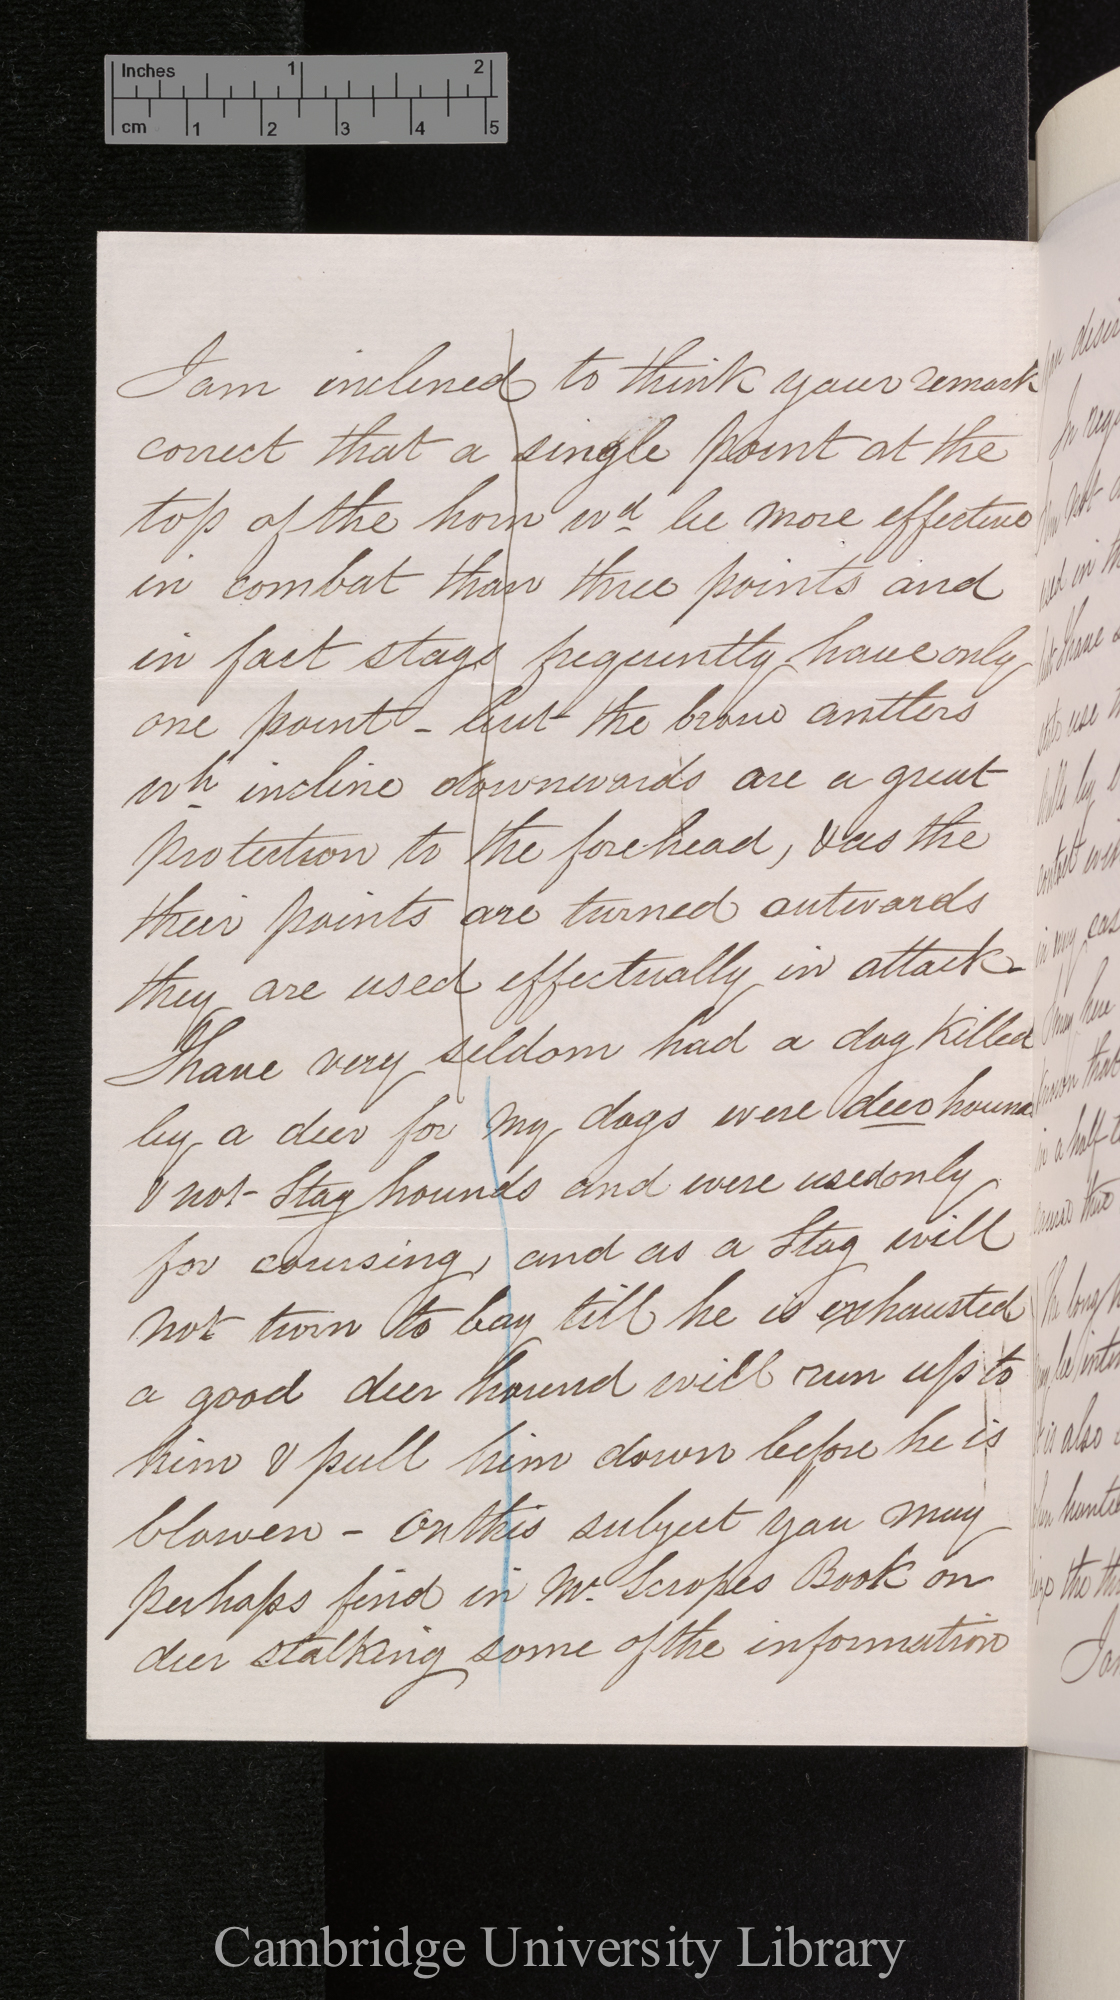 Inches 1 2
cm 1 2 3 4 5
I am inclined to think your remark
correct that a single point at the
top of the horn wd be more effective
in combat than three points and
in fact stags frequently have only
one point - but the brow antlers
wh incline downwards are a great
protection to the forehead, & as the
their points are turned outwards
they are used effectually in attack -
I have very seldom had a dog killed
by a deer for my dogs were deer hounds
& not Stag hounds and were used only
for coursing, and as a Stag will
not turn to bay till he is exhausted
a good deer hound will run up to
him & pull him down before he is
blowen - on this subject you may
perhaps find in Mr. Scropes Book on
deer stalking some of the information
Cambridge University Library